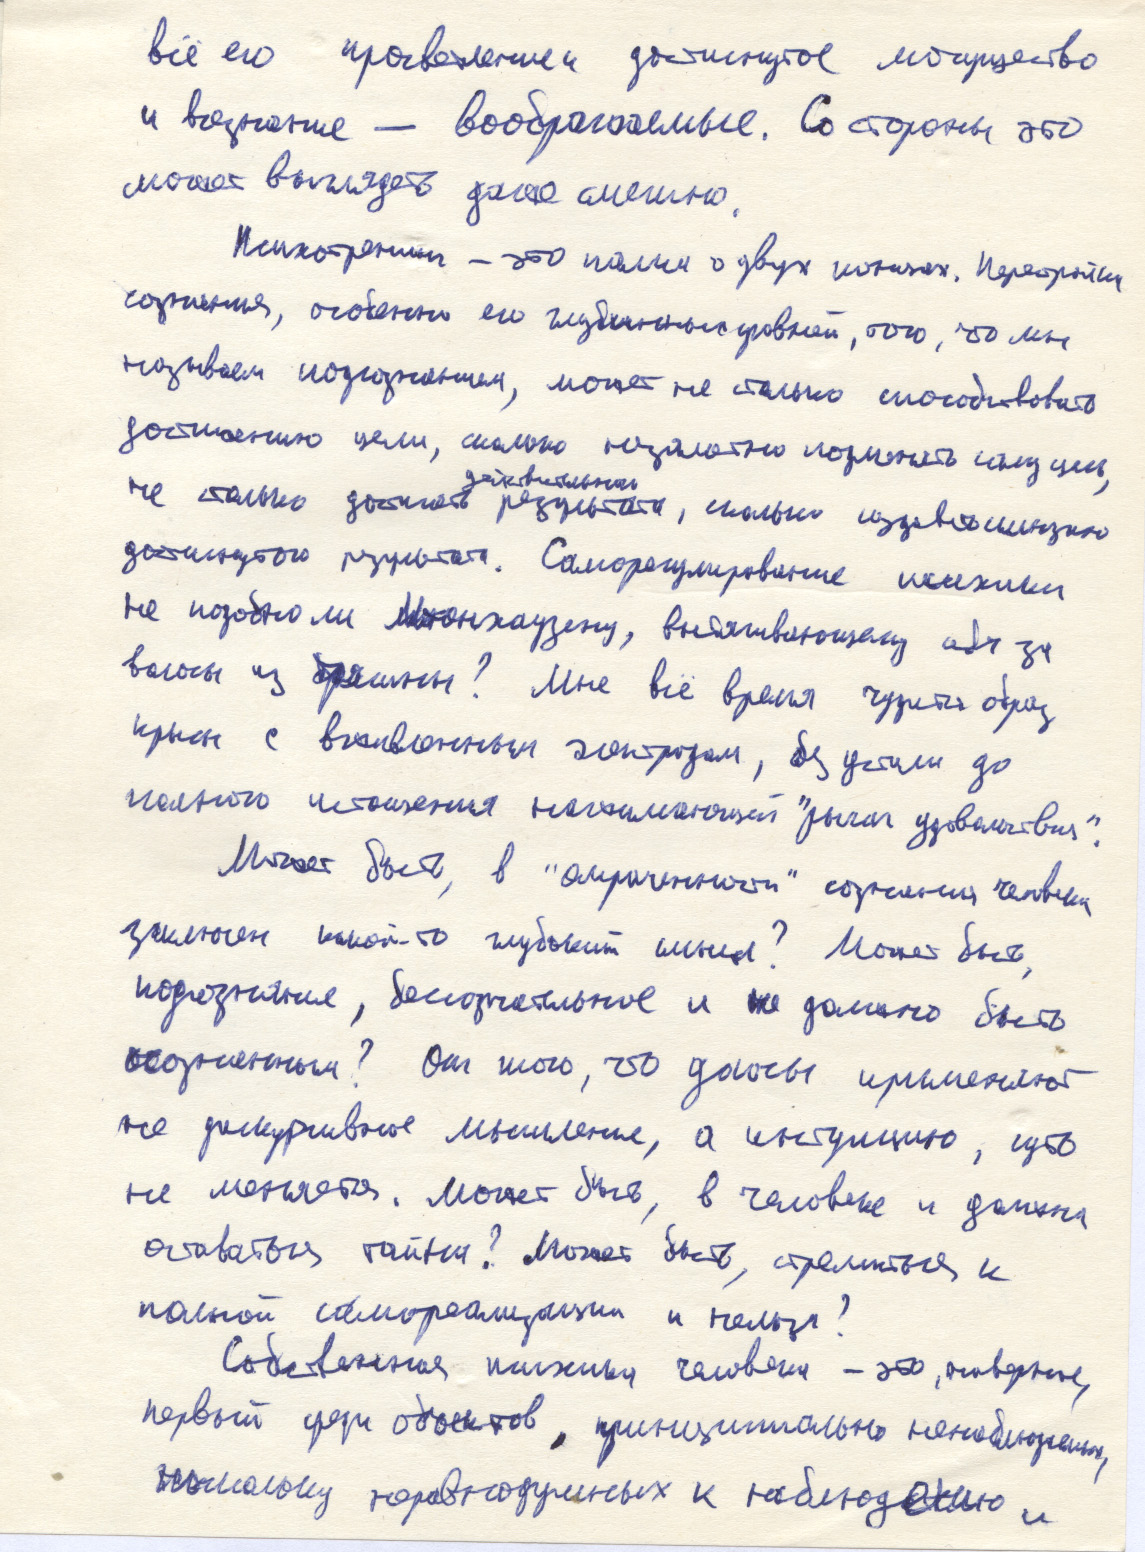 всё его просветлением достигнутое могущество
и всезнание — воображаемые. Со стороны это
может выглядеть даже смешно.
Психотренинг – это палка о двух концах. Перестройка
сознания, особенно его глубинных уровней, того, что мы
называем подсознанием, может не столько способствовать
достижению цели, сколько незаметно подменять саму цель,
не столько достигать действительного результата, сколько создавать иллюзию
достигнутого результата. Саморегулирование психики
не подобно ли Мюнхаузену, вытягивающему себя за
волосы из трясины? Мне всё время чудится образ
крысы с вживлённым электродом, без устали до
полного истощения нажимающей "рычаг удовольствия".
Может быть, в "омраченности" сознания человека
заключен какой-то глубокий смысл? Может быть,
подсознание, бессознательное и не должно быть
осознанным? От того, что даосы применяют
не дискурсивное мышление, а интуицию, суть
не меняется. Может быть, в человеке и должна
оставаться тайна? Может быть, стремиться к
полной самореализации и нельзя?
Собственная психика человека – это, наверное,
первый среди объектов, принципиально ненаблюдаемых,
поскольку неравнодушных к наблюдению и